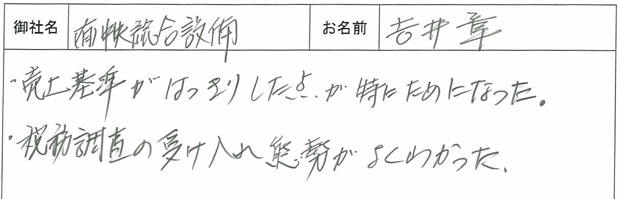 御社名 (有)映総合設備 お名前 吉井 章
・売上基準がはっきりした点が特にためになった。
・税務調査の受け入れ態勢がよくわかった。